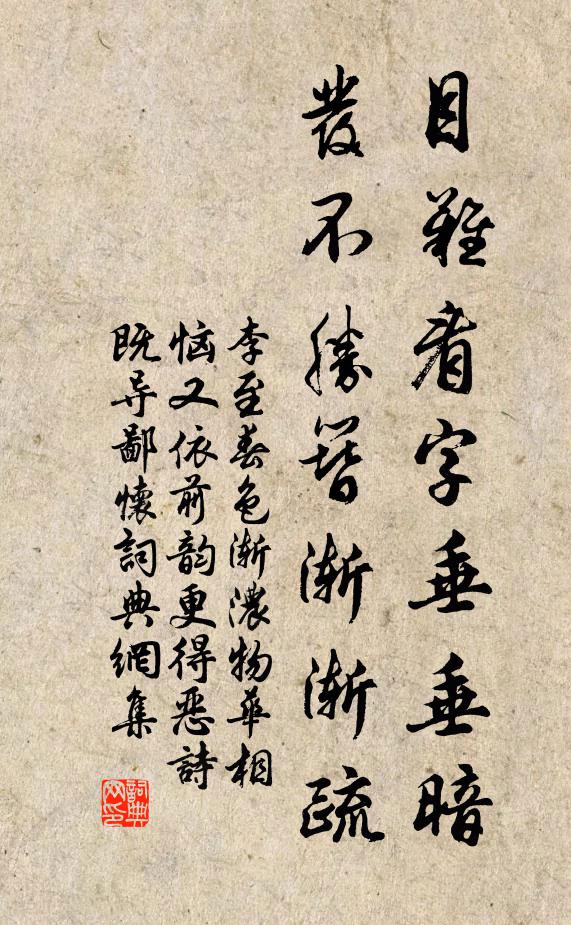 目難看字垂垂暗
發不勝簪漸漸疏
李至春色漸濃物華相
惱又依前韵更得惡詩
既导鄙懷詞典網集
詞典网印